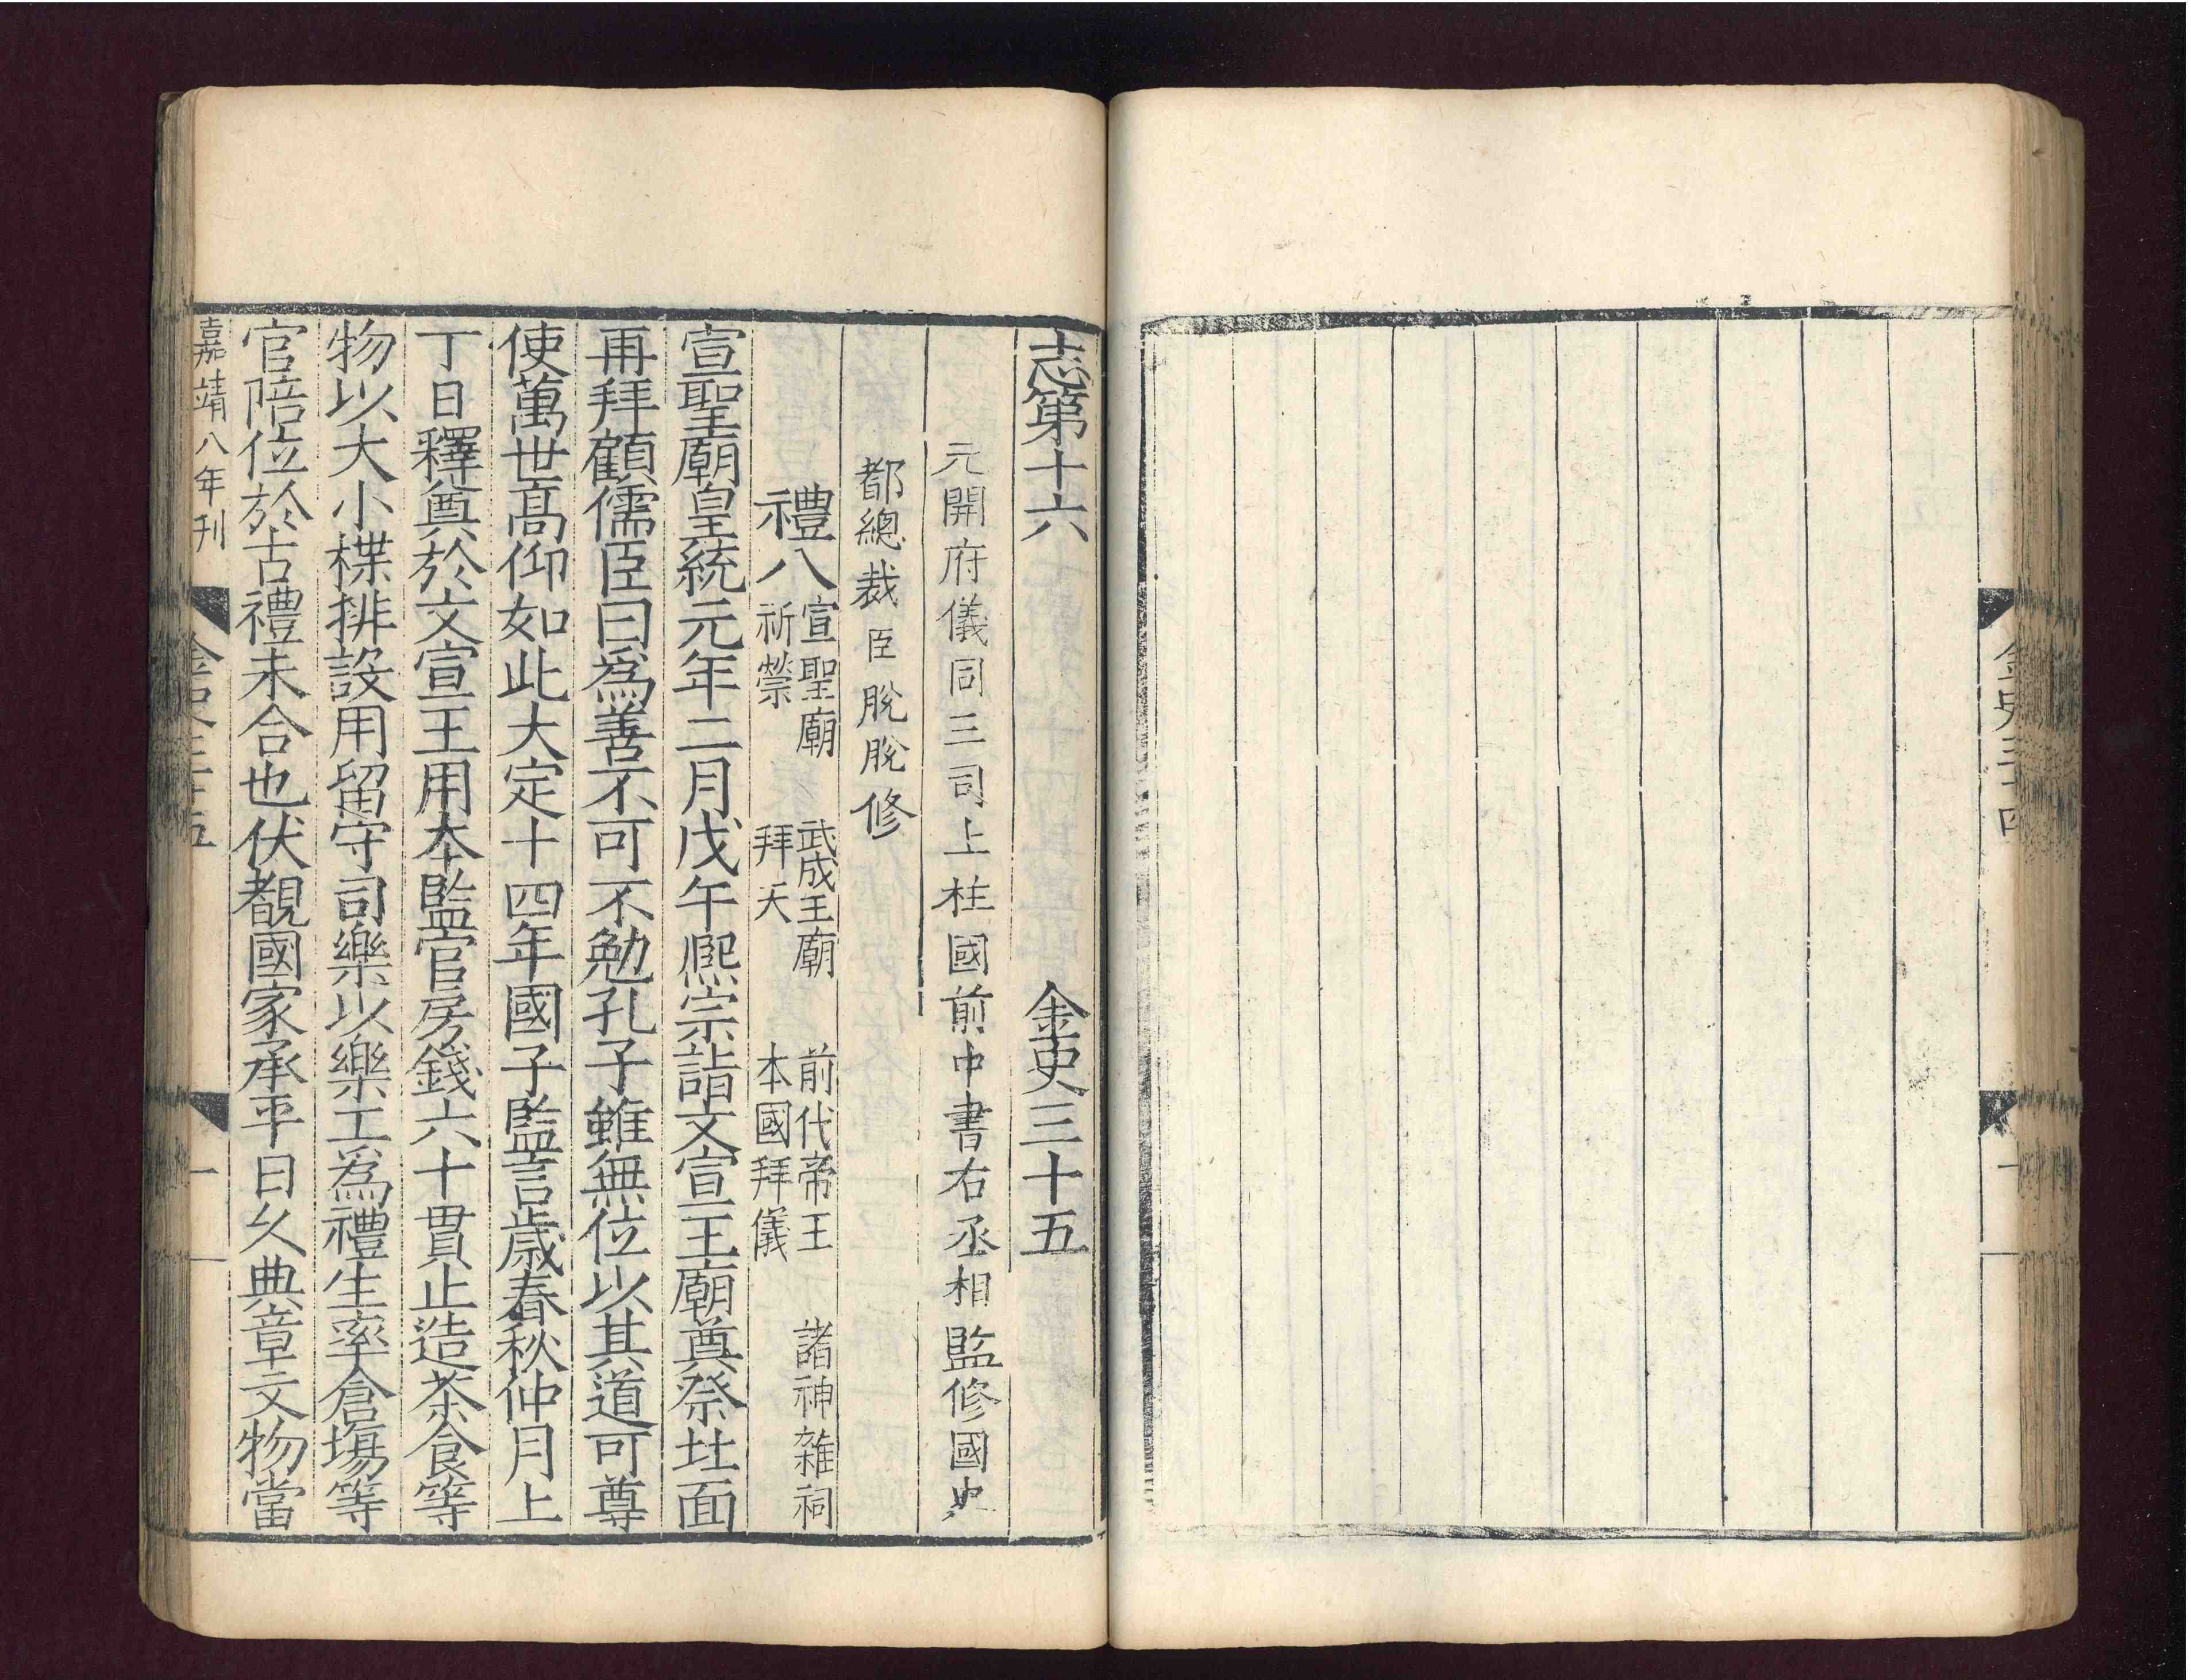 金史三十四
十
志第十六 金史三十五
元開府儀同三司上柱國前中書右丞相監修國史
都總裁臣脫脫修
禮八
宣聖廟 武成王廟 前代帝王 諸神雜祠
祈禜 拜天 本國拜儀
宣聖廟皇統元年二月戊午熙宗詣文宣王廟奠祭北面
再拜顧儒臣曰為善不可不勉孔子雖無位以其道可尊
使萬世高仰如此大定十四年國子監言歲春秋仲月上
丁日釋奠於文宣王用本監官房錢六十貫止造茶食等
物以大小楪排設用留守司樂以樂工為禮生率倉場等
官陪位於古禮未合也伏覩國家承平日久典章文物當
嘉靖八年刊
金史三十五
一